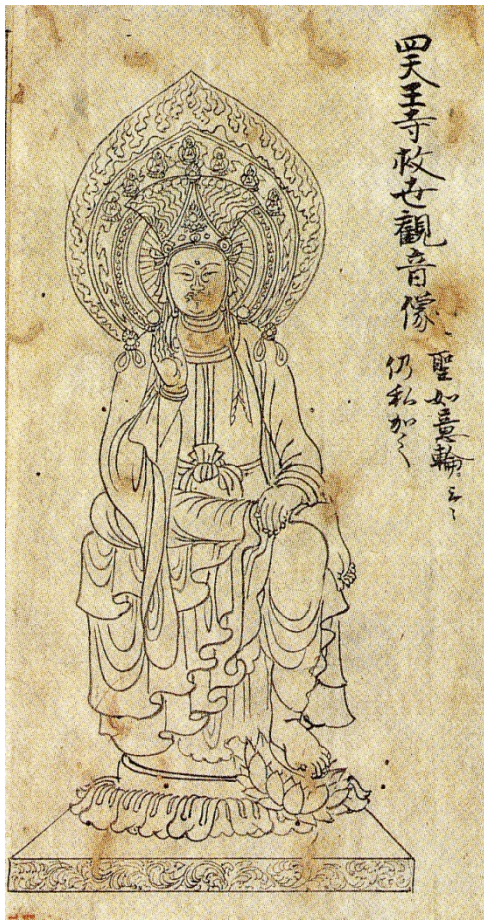 四天王寺救世観音像
聖如意輪云々
仍私加之